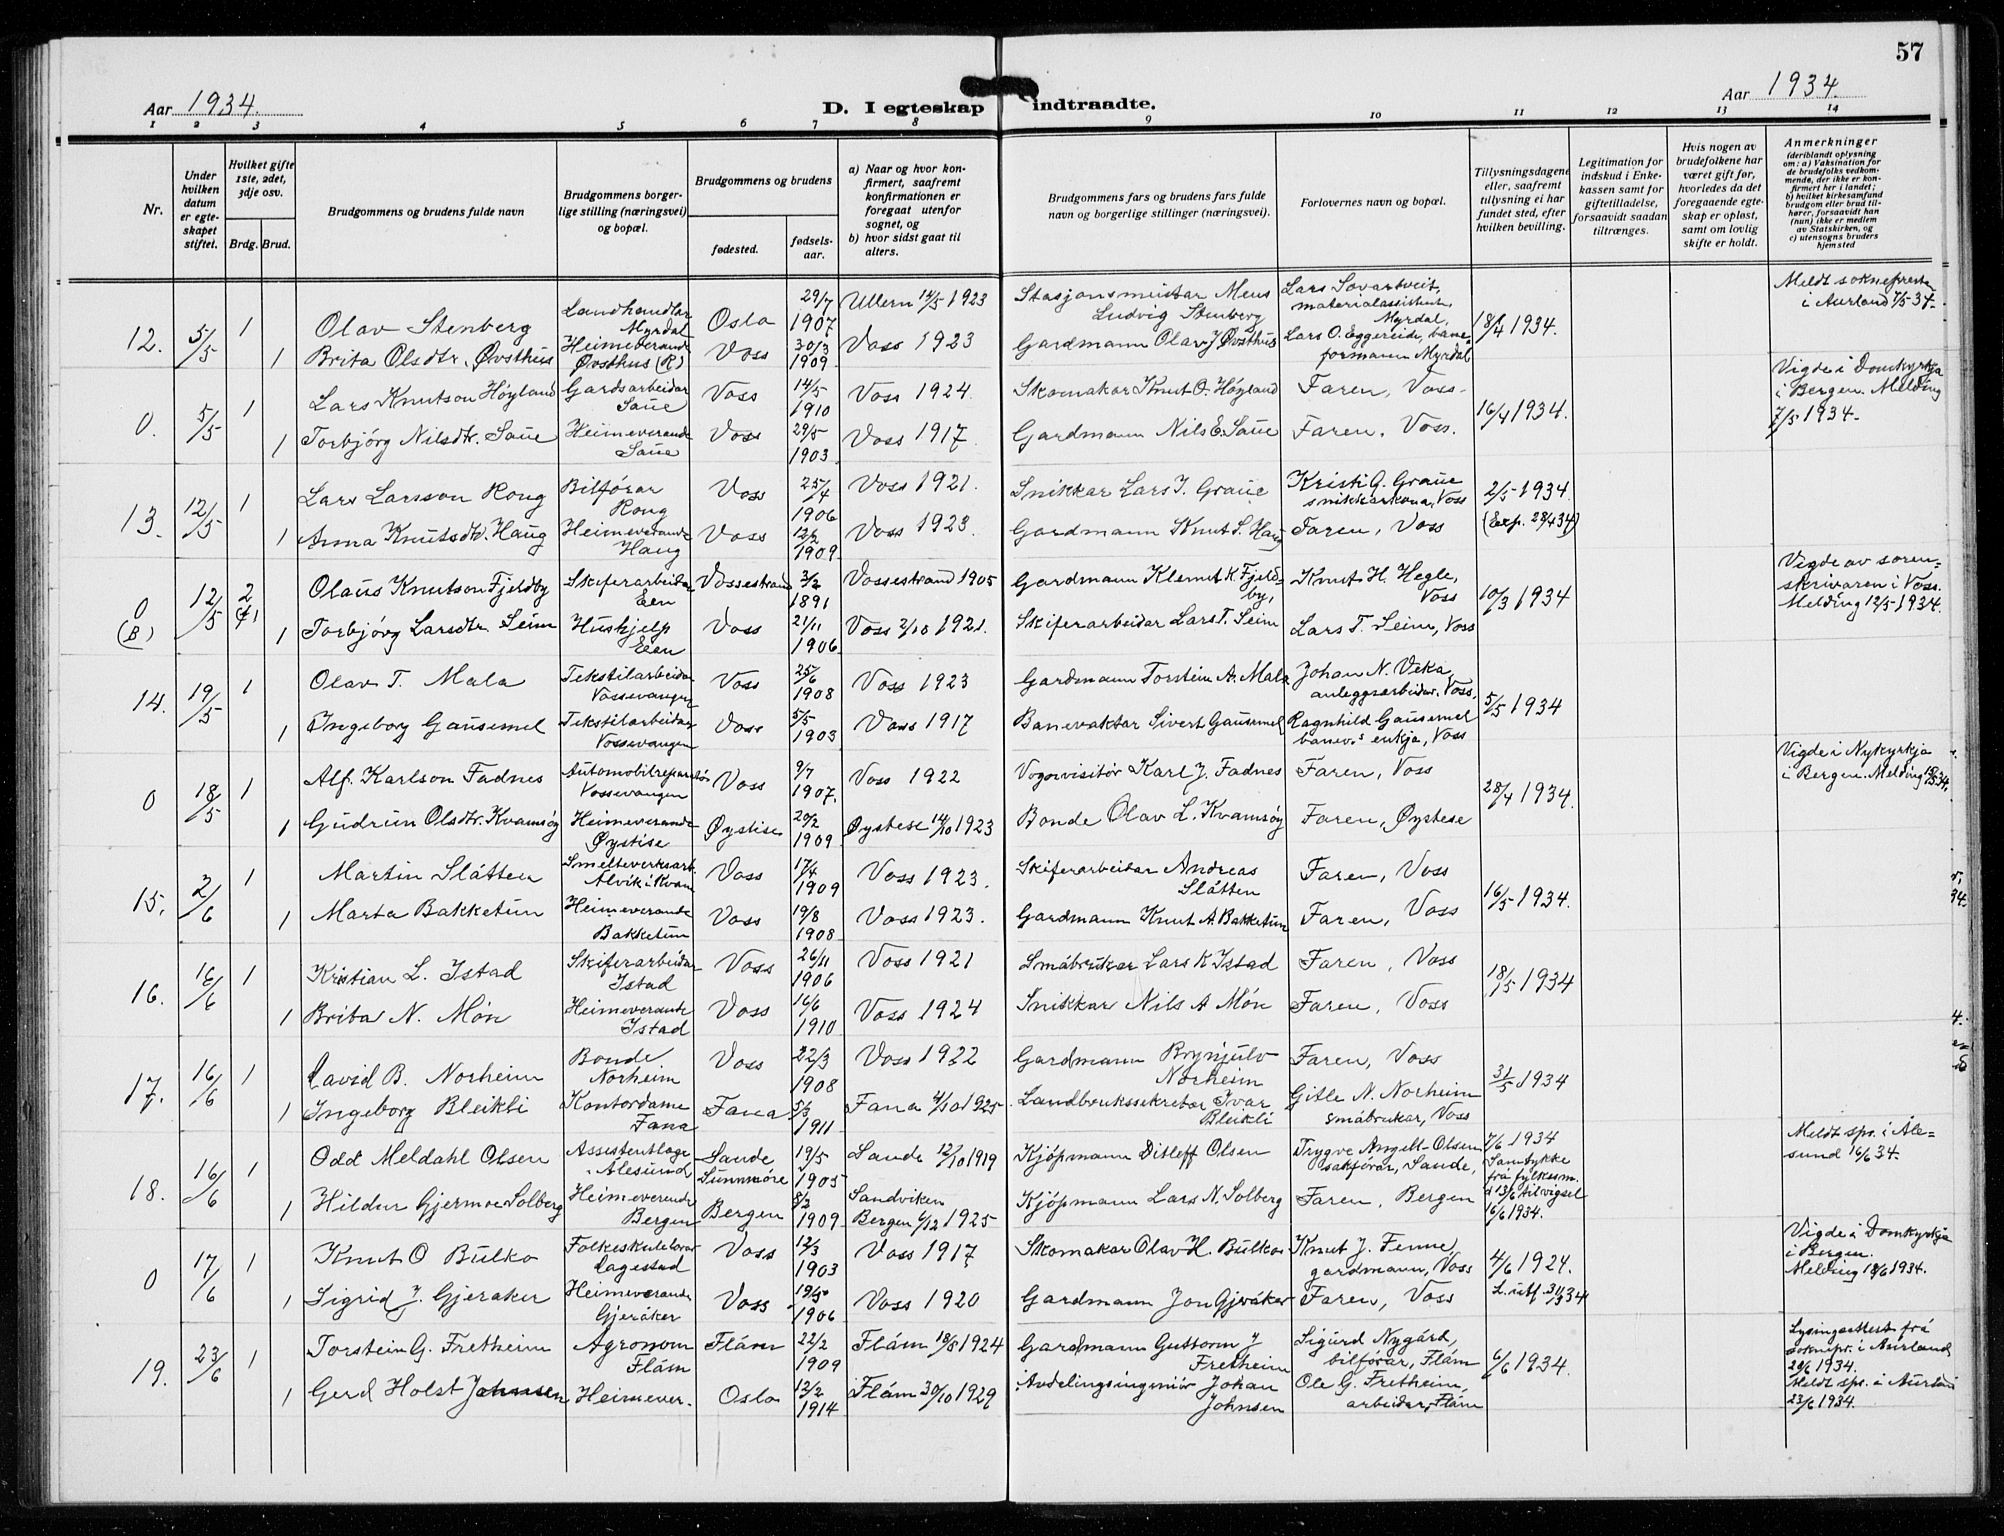 57
Aar 1934.
D. I egteskap indtraadte.
Aar 1934.
1 2 3 4 5 6 7 8 9 10 11 12 13 14
Nr.
Under hvilken datum er egteskapet stiftet.
Hvilket gifte 1ste, 2det, 3dje osv.
Brdg. Brud.
Brudgommens og brudens fulde navn
Brudgommens borgerlige stilling (næringsvei) og bopæl.
Brudgommens og brudens
fødested.
fødselsaar.
a) Naar og hvor konfirmert, saafremt konfirmationen er foregaat utenfor sognet, og
b) hvor sidst gaat til alters.
Brudgommens fars og brudens fars fulde navn og borgerlige stillinger (næringsvei).
Forlovernes navn og bopæl.
Tillysningsdagene eller, saafremt tillysning ei har fundet sted, efter hvilken bevilling.
Legitimation for indskud i Enkekassen samt for giftetilladelse, forsaavidt saadan tiltrænges.
Hvis nogen av brudefolkene har været gift før, hvorledes da det foregaaende egteskap er opløst, samt om lovlig skifte er holdt.
Anmerkninger
(deriblandt oplysning om: a) Vaksination for de brudefolks vedkommende, der ikke er konfirmert her i landet; b) hvilket kirkesamfund brudgom eller brud tilhører, forsaavidt han (hun) ikke er medlem av Statskirken, og c) utensogns bruders hjemsted
12. 5/5 1 Olav Stenberg Landhandlar Myrdal Oslo 29/7 1907 Ullern 14/5 1923 Stasjonsmeistar Mens Ludvig Stenberg Lars Sovartveit, materialassistent, Myrdal, 18/4 1934. Meldt soknepresten i Aurland 7/5 34.
1 Brita Olsdtr. Øvsthus Heimeverande Øvsthus (R) Voss 30/3 1909 Voss 1923 Gardmann Olav J Øvsthus Lars O. Eggereide, baneformann Myrdal
0. 5/5 1 Lars Knutson Høyland Gardsarbeidar Saue Voss 14/5 1910 Voss 1924. Skomakar Knut O. Høyland Faren, Voss. 16/4 1934. Vigde i Domkyrkja i Bergen. Melding 7/5 1934.
1 Torbjørg Nilsdtr. Saue Heimeverande Saue Voss 29/5 1903 Voss 1917. Gardmann Nils E. Saue Faren, Voss.
13. 12/5 1 Lars Larsson Rong Bilførar Rong Voss 25/4 1906 Voss 1921. Snikkar Lars I. Graue Kristi G. Graue snikkarkona, Voss 2/5 1934. (Exp. 28/4 34)
1 Anna Knutsdtr. Haug Heimeverande Haug Voss 12/2 1909. Voss 1923. Gardmann Knut S. Haug Faren, Voss
0 (B) 12/5 2 (f1) Olaus Knutson Fjeldby Skiferarbeidar Een Vossestrand 3/2 1891 Vossestrand 1905 Gardmann Klemet K Fjeldby, Knut H. Hegle, Voss 10/3 1934 Vigde av sorenskrivaren i Voss. Melding 12/5 1934.
1 Torbjørg Larsdtr. Seim Hushjelp Een Voss 21/11 1906 Voss 2/10 1921. Skiferarbeidar Lars T. Seim Lars T. Seim, Voss
14. 19/5 1 Olav T. Mala Tekstilarbeidar Vossevangen Voss 25/6 1908 Voss 1923 Gardmann Torstein A. Mala Johan N. Veka, anleggsarbeidar, Voss, 5/5 1934
1 Ingeborg Gausemel Tekstilarbeidar Vossevangen Voss 5/5 1903 Voss 1917 Banevaktar Sivert Gausemel Ragnhild Gausemel banev.s enkja, Voss
0 18/5 1 Alf. Karlson Fadnes Automobilreparatør Vossevangen Voss 9/7 1907. Voss 1922 Vognvisitør Karl J. Fadnes Faren, Voss 28/4 1934. Vigde i Nykyrkja i Bergen. Melding
1 Gudrun Olsdtr. Kvamsøy Heimeverande Øystise Øystise 20/2 1909 Øystese 14/10 1923 Bonde Olav L. Kvamsøy Faren, Øystese
15. 2/6 1 Martin Slåtten Smelteverksarb. Ålvik i Kvam Voss 17/4 1909 Voss 1923. Skiferarbeidar Andreas Slåtten Faren, Voss 16/5 1934.
1 Marta Bakketun Heimeverande Bakketun Voss 19/8 1908 Voss 1923. Gardmann Knut A. Bakketun Faren, Voss
16. 16/6 1 Kristian L. Istad Skiferarbeidar Istad Voss 26/11 1906 Voss 1921 Småbrukar Lars K Istad Faren, Voss 18/5 1934
1 Brita N. Møn Heimeverande Istad Voss 16/6 1910 Voss 1924 Snikkar Nils A Møn Faren, Voss
17. 16/6 1 David B. Norheim Bonde Norheim Voss 22/3 1908 Voss 1922 Gardmann Brynjulv Norheim Faren, Voss 31/5 1934
1 Ingeborg Bleikli Kontordame Fana Fana 5/3 1911 Fana 4/10 1925. Landbrukssekretær Ivar Bleikli Gitle N. Norheim småbrukar, Voss
18. 16/6 1 Odd Meldahl Olsen Assistentlege Ålesund Sande Sunnmøre 19/5 1905 Sande 12/10 1919 Kjøpmann Ditleff Olsen Trygve Angelt-Olsen sakførar, Sande, 7/6 1934 Samtykke frå fylkesm. d 13/6 til vigsel 16/6 1934. Meldt spr. i Ålesund 16/6 34.
1 Hildur Gjermoe Solberg Heimeverande Bergen Bergen 8/2 1909 Sandviken Bergen 6/12 1925 Kjøpmann Lars N. Solberg Faren, Bergen
0 17/6 1 Knut O Bulko Folkeskulelærar Lagestad Voss 12/3 1903 Voss 1917 Skomakar Olav H. Bulko Knut J. Fenne, gardmann, Voss 4/6 1924. L. utf. Vigde i Domkyrkja i Bergen. Melding 18/6 1934.
1 Sigrid J. Gjeraker Heimeverande Gjeråker Voss 1906 Voss 1920 Gardmann Jon Gjeråker Faren, Voss
19. 23/6 1 Torstein G. Fretheim Agronom Flåm Flåm 22/2 1909 Flåm 18/8 1924 Gardmann Guttorm J Fretheim Sigurd Nygård, bilførar, Flåm 6/6 1934. Lysingsattest frå soknpr. i Aurland 20/6 1934. Meldt spr. i Aurland 23/6 1934.
1 Gerd Holst Johnsen Heimever. Oslo 12/2 1914 Flåm 30/10 1929 Avdelingsingeniør Johan Johnsen Ole G. Fretheim, arbeidar, Flåm